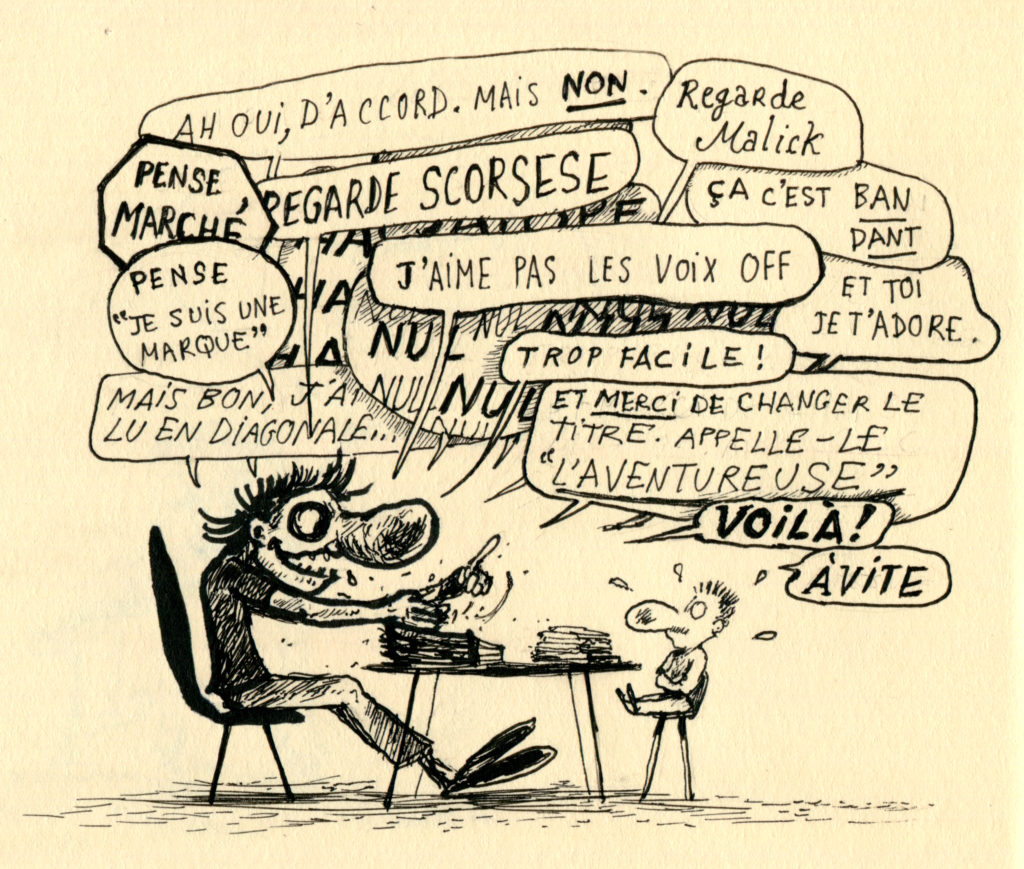 AH OUI, D'ACCORD. MAIS NON.
Regarde
Malick
PENSE
MARCHÉ
REGARDE SCORSESE
ÇA C'EST BAN
DANT
HA
J'AIME PAS LES VOIX OFF
PENSE
"JE SUIS UNE
MARQUE"
HA
HA
ET TOI
JE T'ADORE.
NUL NUL NUL NUL
TROP FACILE !
MAIS BON, J'AI
LU EN DIAGONALE...
NUL NUL
ET MERCI DE CHANGER LE
TITRE. APPELLE-LE
"L'AVENTUREUSE"
VOILÀ!
À VITE